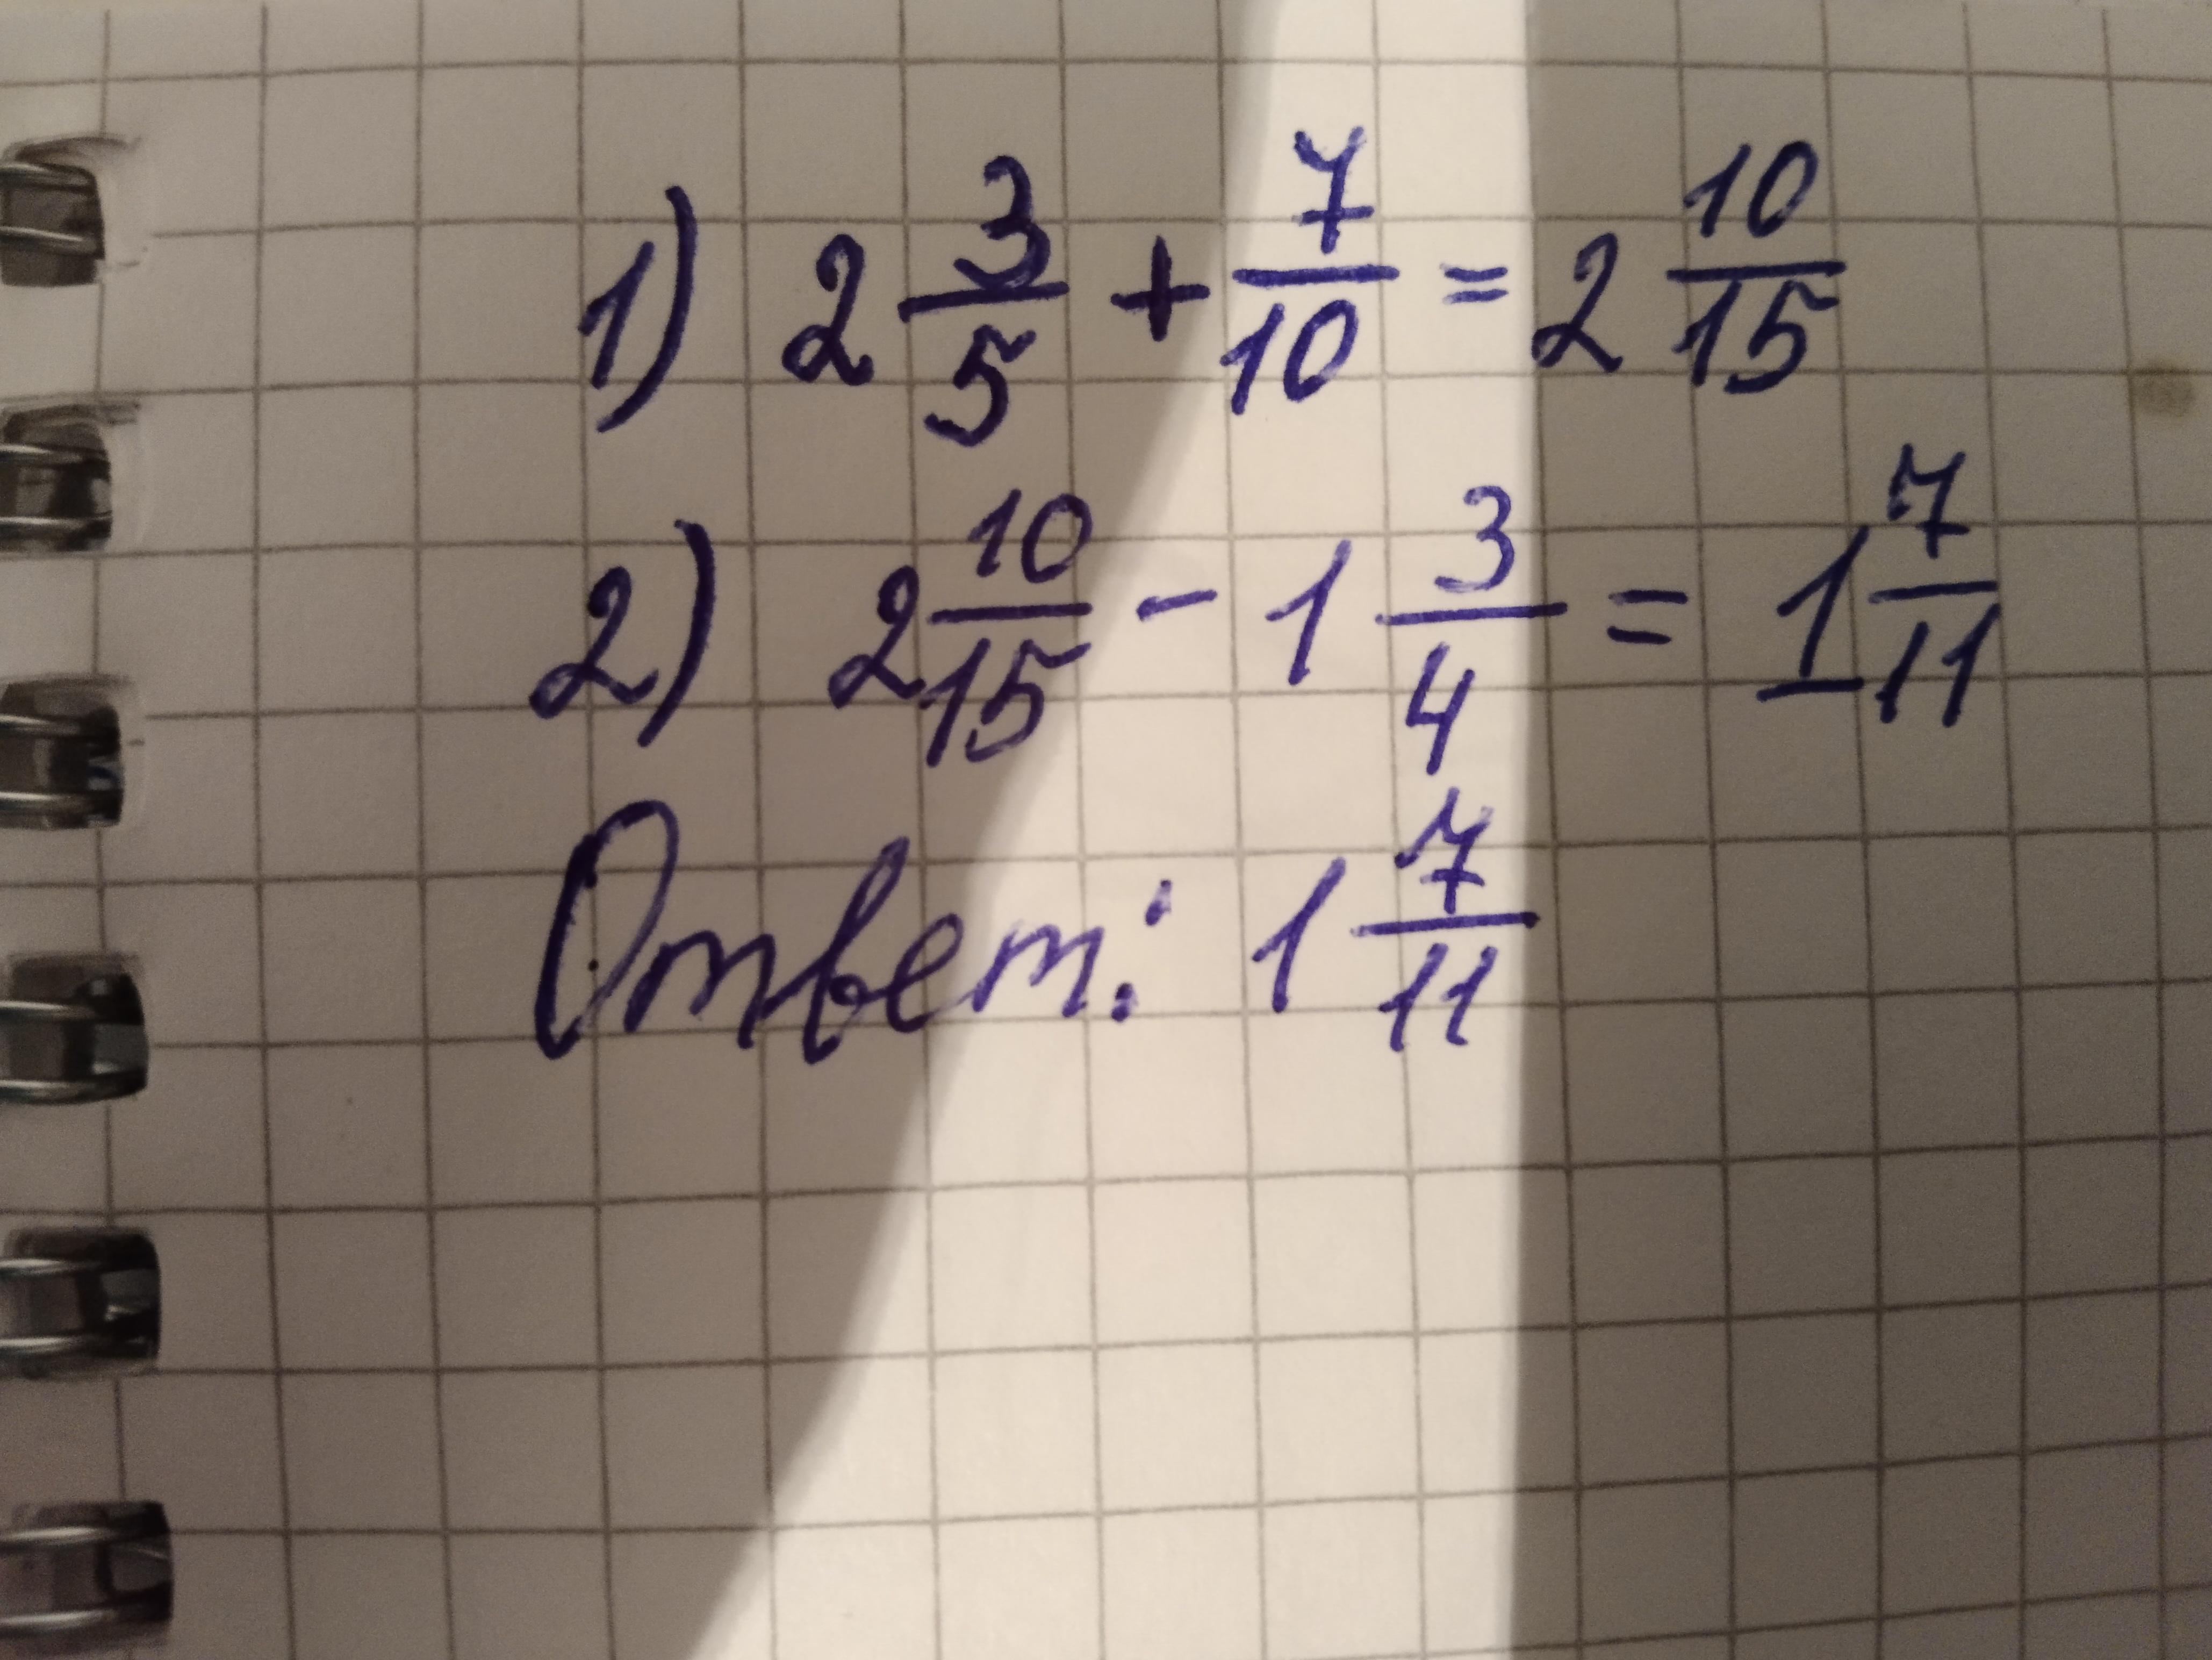 1) 2 3/5 + 7/10 = 2 10/15
2) 2 10/15 - 1 3/4 = 1 7/11
Ответ: 1 7/11